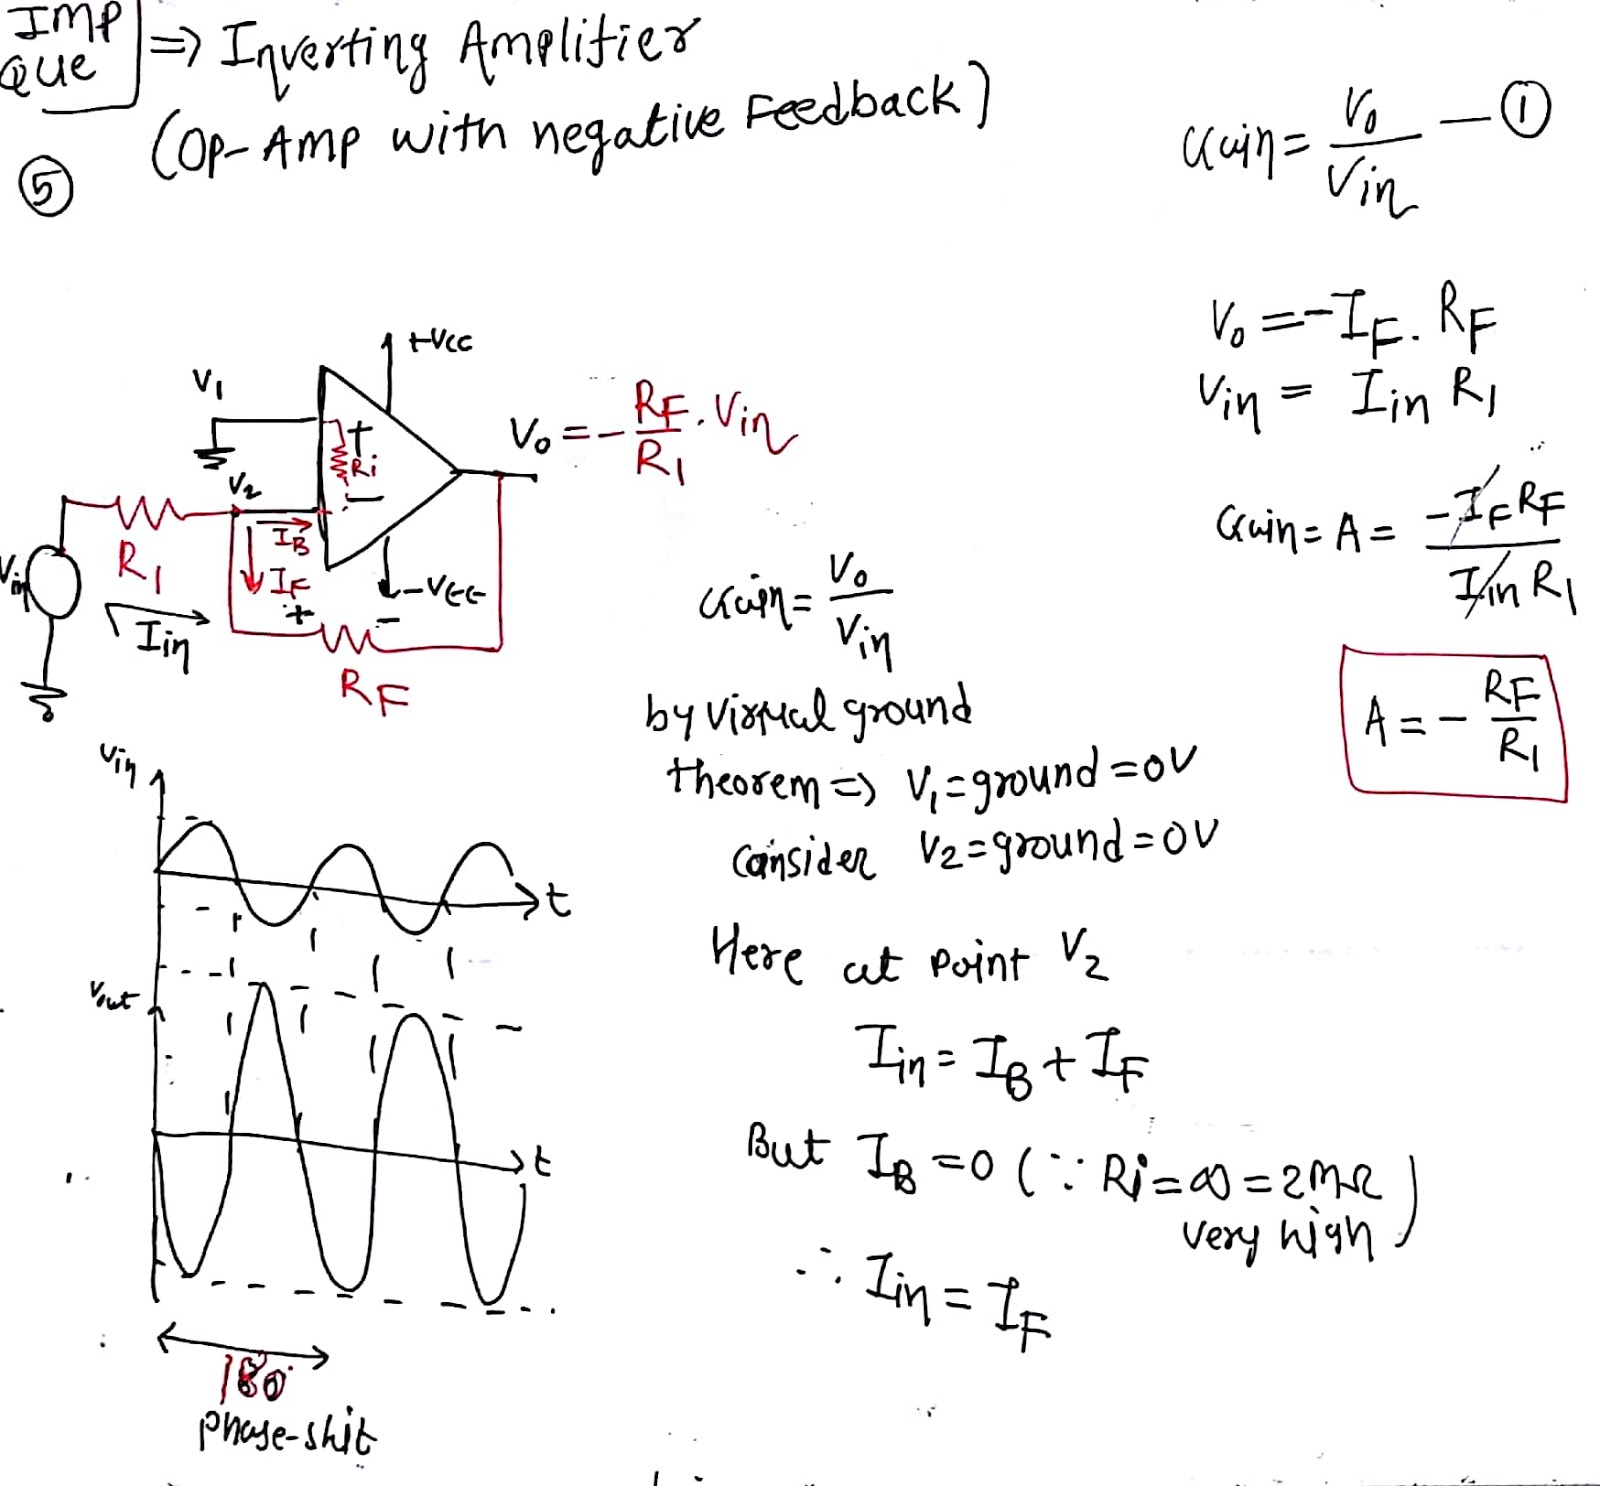 IMP
Que
⇒ Inverting Amplifier
(Op-Amp with negative Feedback)
⑤
Gain = Vo/Vin — ①
Vo = -IF. RF
Vin = Iin R1
Gain = A = -IF RF / Iin R1
A = - RF/R1
+VCC
V1
+
Ri
Vo = - RF/R1 . Vin
V2
-
IB
R1
Vin
IF
-VEE
+ -
Iin
RF
Gain = Vo/Vin
by virtual ground
theorem ⇒ V1 = ground = 0V
Consider V2 = ground = 0V
Here at point V2
Iin = IB + IF
But IB = 0 (∵ Ri = ∞ = 2MΩ
very high)
∴ Iin = IF
Vin
t
Vout
t
180°
phase-shit